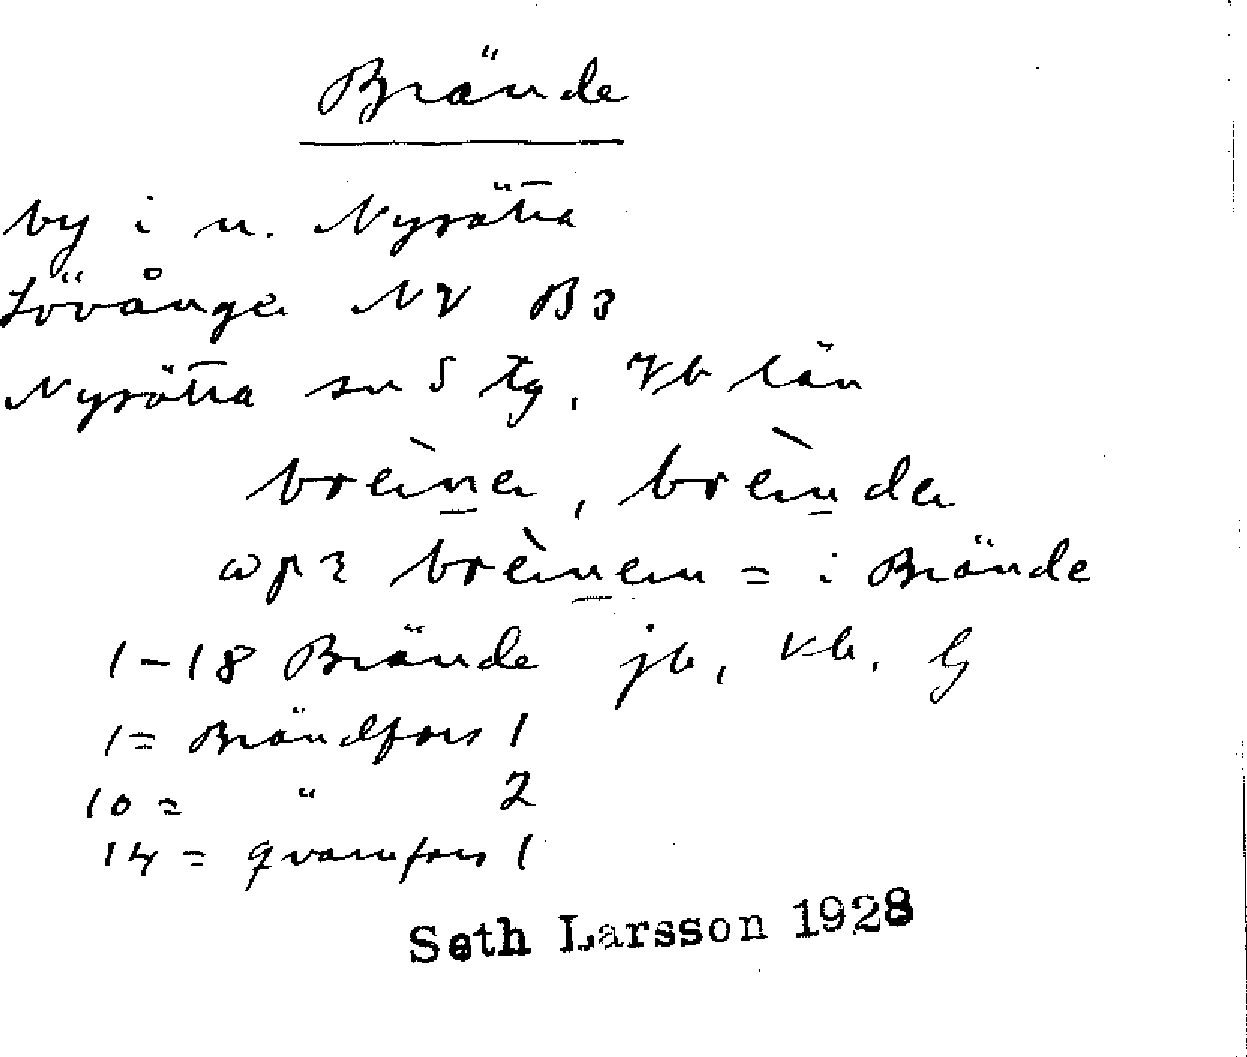 Brände
by i n. Nysätra
Lövånger NV B3
Nysätra sn S tg, Vb län
brèna, brènda
brènem = i Brände
1-18 Brände jb, kb, G
1= Brändfors 1
10 = " 2
14 = qvarnfors 1
Seth Larsson 1928